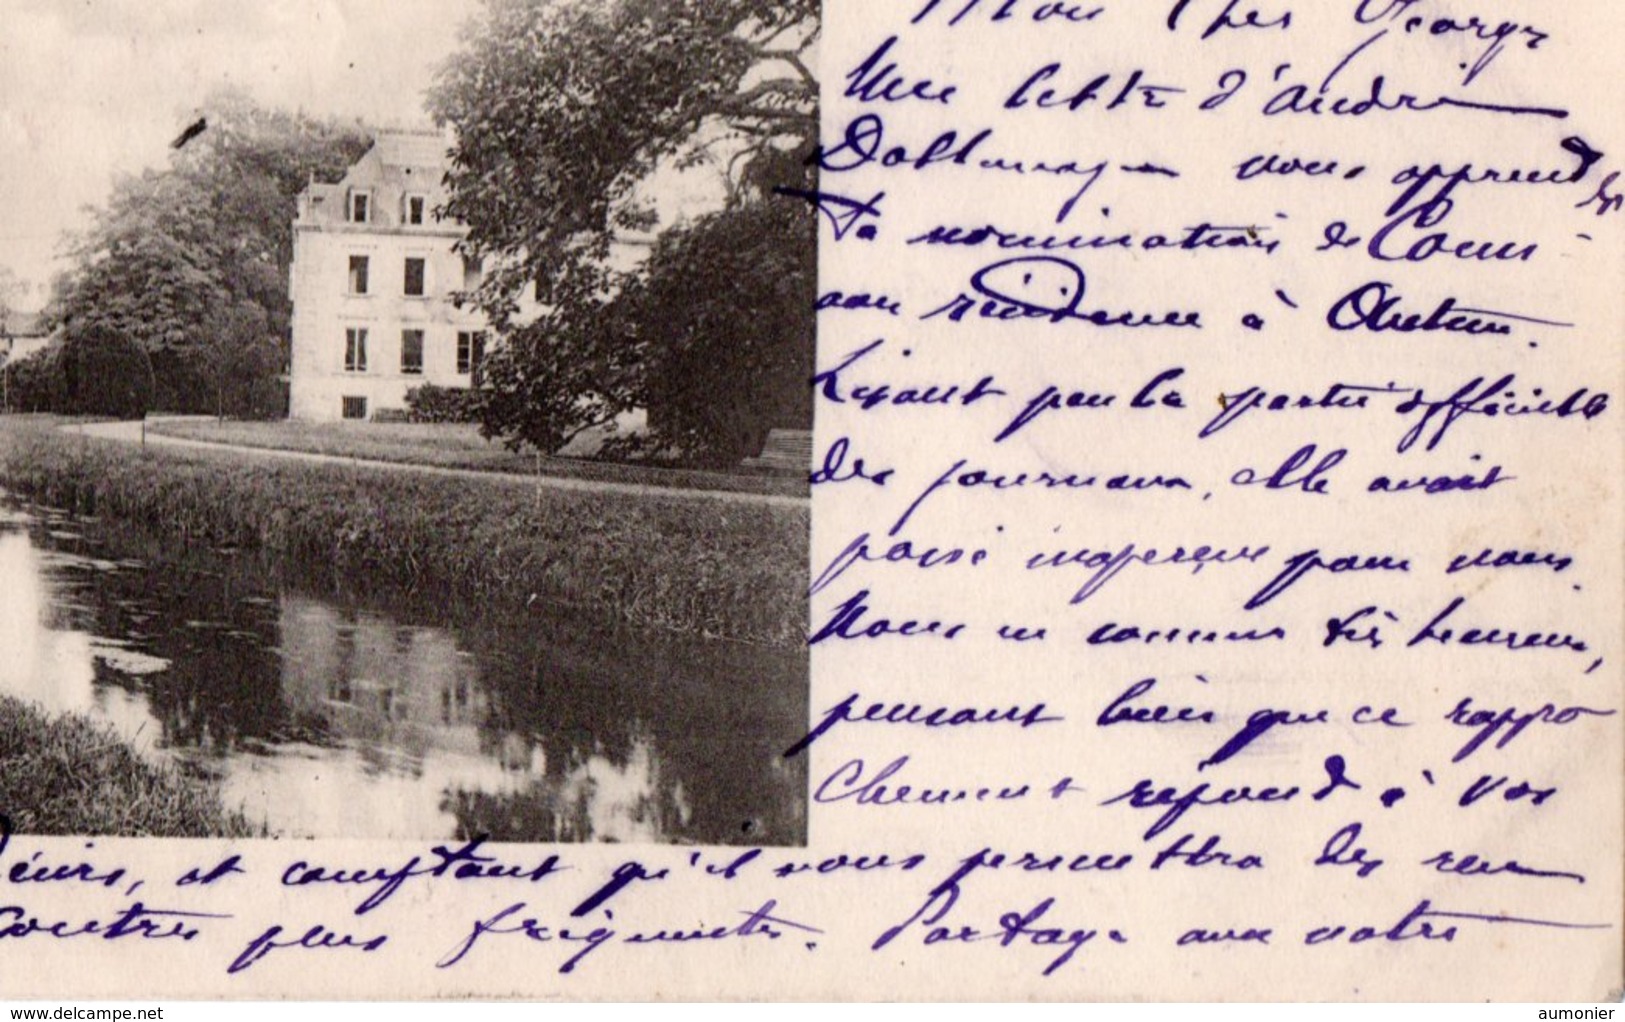 Mon cher George
Une lettre d'André
nous apprend
ta nomination de Com
son résidence à Autun.
Lisant peu la partie officielle
des journaux, elle avait
passé inaperçue pour nous.
Nous en sommes très heureux,
pensant bien que ce rappro
chement répond à vos
désirs, et comptant qu'il nous permettra des ren
contres plus fréquentes. Partage avec notre
delcampe.net
aumonier